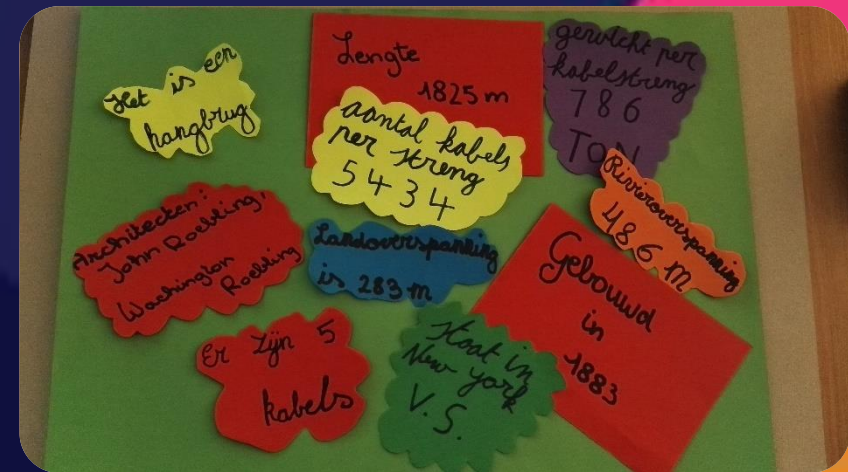 Het is een
hangbrug
Lengte
1825 m
aantal kabels
per streng
5434
gewicht per
kabelstreng
786
TON
Rivieroverspanning
486 M
Architecten:
John Roebling,
Wachington
Roebling
Landoverspanning
is 283 m
Gebouwd
in
1883
Er zijn 5
kabels
staat in
New york
V.S.